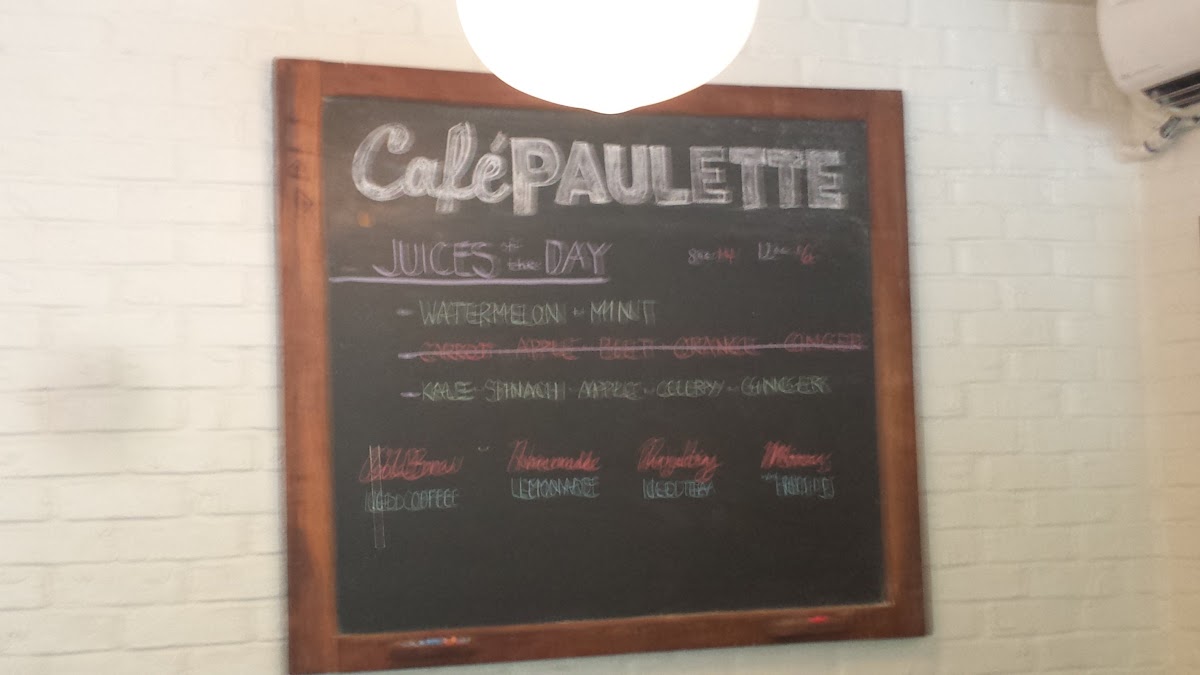 Café PAULETTE
JUICES of the DAY 8oz $4 12oz $6
- WATERMELON - MINT
- CARROT APPLE BEET ORANGE GINGER
- KALE - SPINACH - APPLE - CELERY - GINGER
Cold Brew Homemade
ICED COFFEE LEMONADE ICED TEA